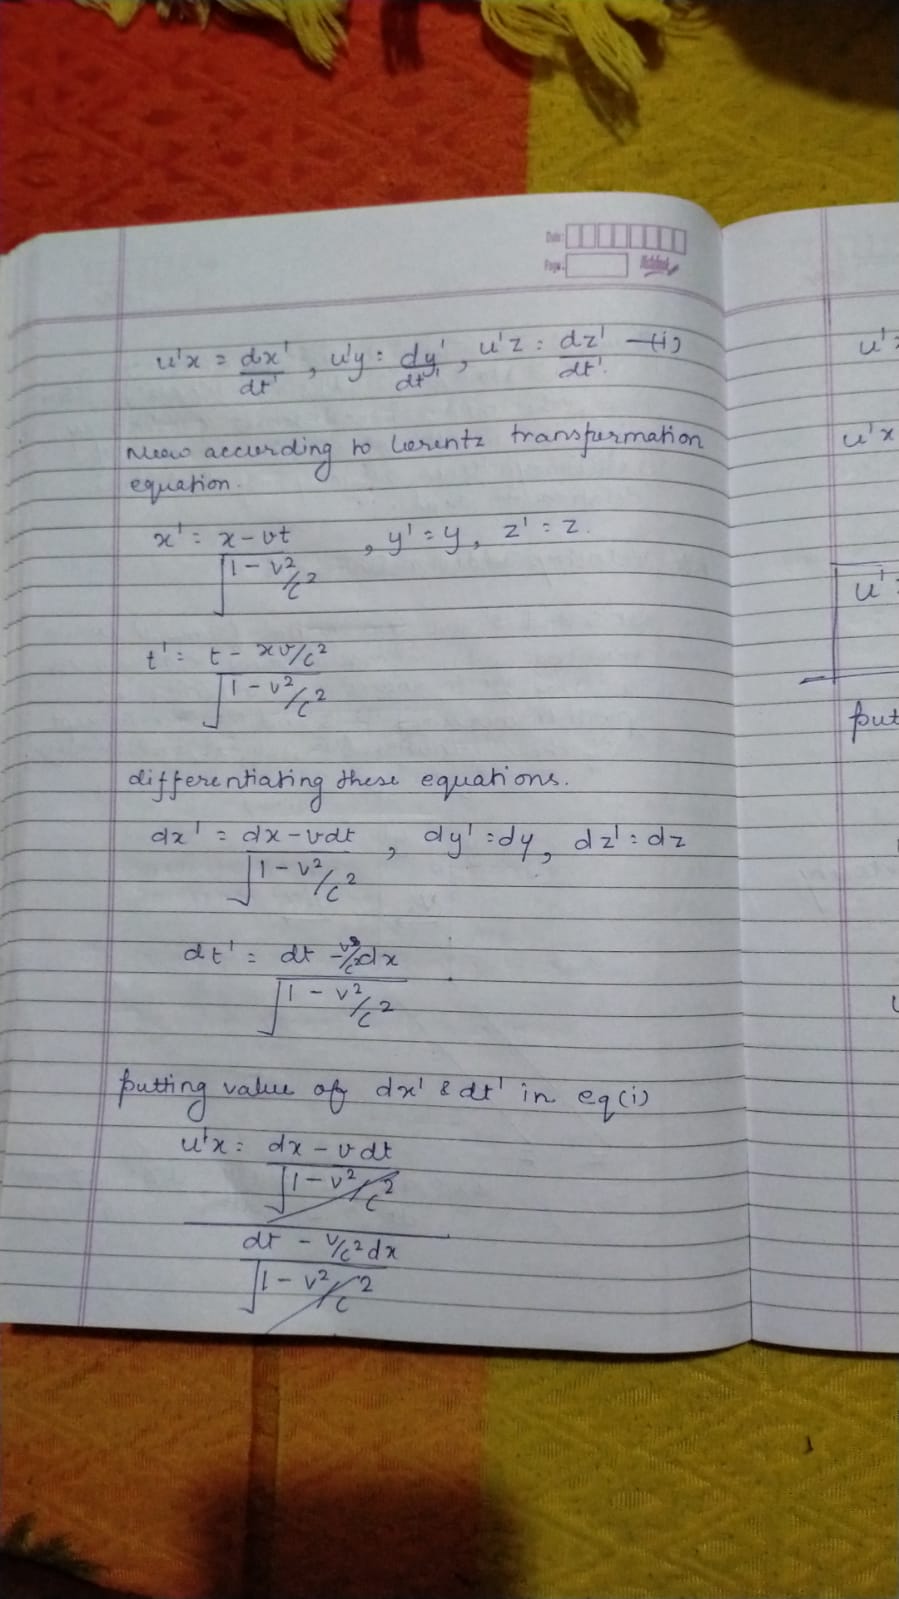 Date:
Page:
u'x = dx'/dt' , u'y = dy'/dt' , u'z = dz'/dt' —(i)
Now according to Lorentz transformation
equation.
x' = x-vt/√1-v²/c² , y' = y, z' = z.
t' = t - xv/c²/√1-v²/c²
differentiating these equations.
dx' = dx-vdt/√1-v²/c² , dy' = dy, dz' = dz
dt' = dt - v/c² dx/√1-v²/c²
putting value of dx' & dt' in eq(i)
u'x = dx - vdt/√1-v²/c²
dt - v/c² dx/√1-v²/c²
u'
u'x
u'
put